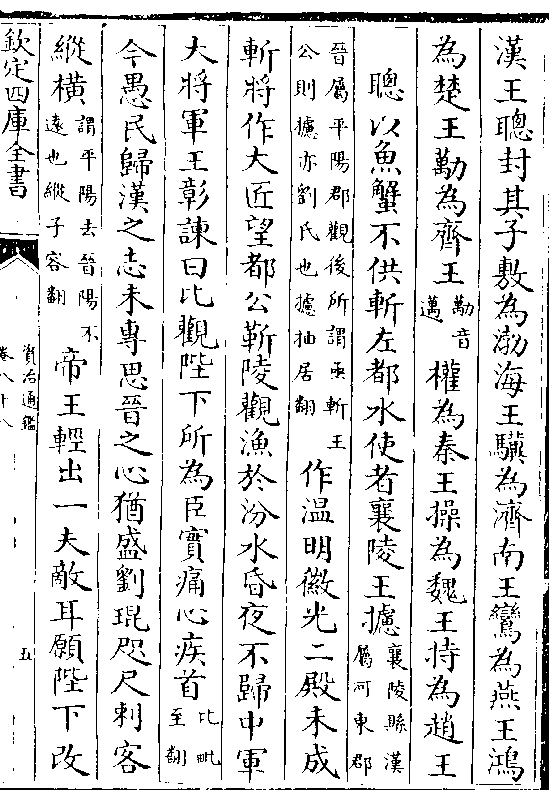 漢王聰封其子敷為渤海王驥為濟南王鸞為燕王鴻
為楚王勱為齊王勱音邁權為秦王操為魏王持為趙王
聰以魚蟹不供斬左都水使者襄陵王攄襄陵縣漢屬河東郡
晉屬平陽郡觀後所謂亟斬王公則攄亦劉氏也攄抽居翻作温明徽光二殿未成
斬將作大匠望都公靳陵觀漁於汾水昏夜不歸中軍
大將軍王彰諫曰比觀陛下所為臣實痛心疾首比毗至翻
今愚民歸漢之志未專思晉之心猶盛劉琨咫尺刺客
縱橫謂平陽去晉陽不遠也縱子容翻帝王輕出一夫敵耳願陛下改
欽定四庫全書
資治通鑑
卷八十八
五